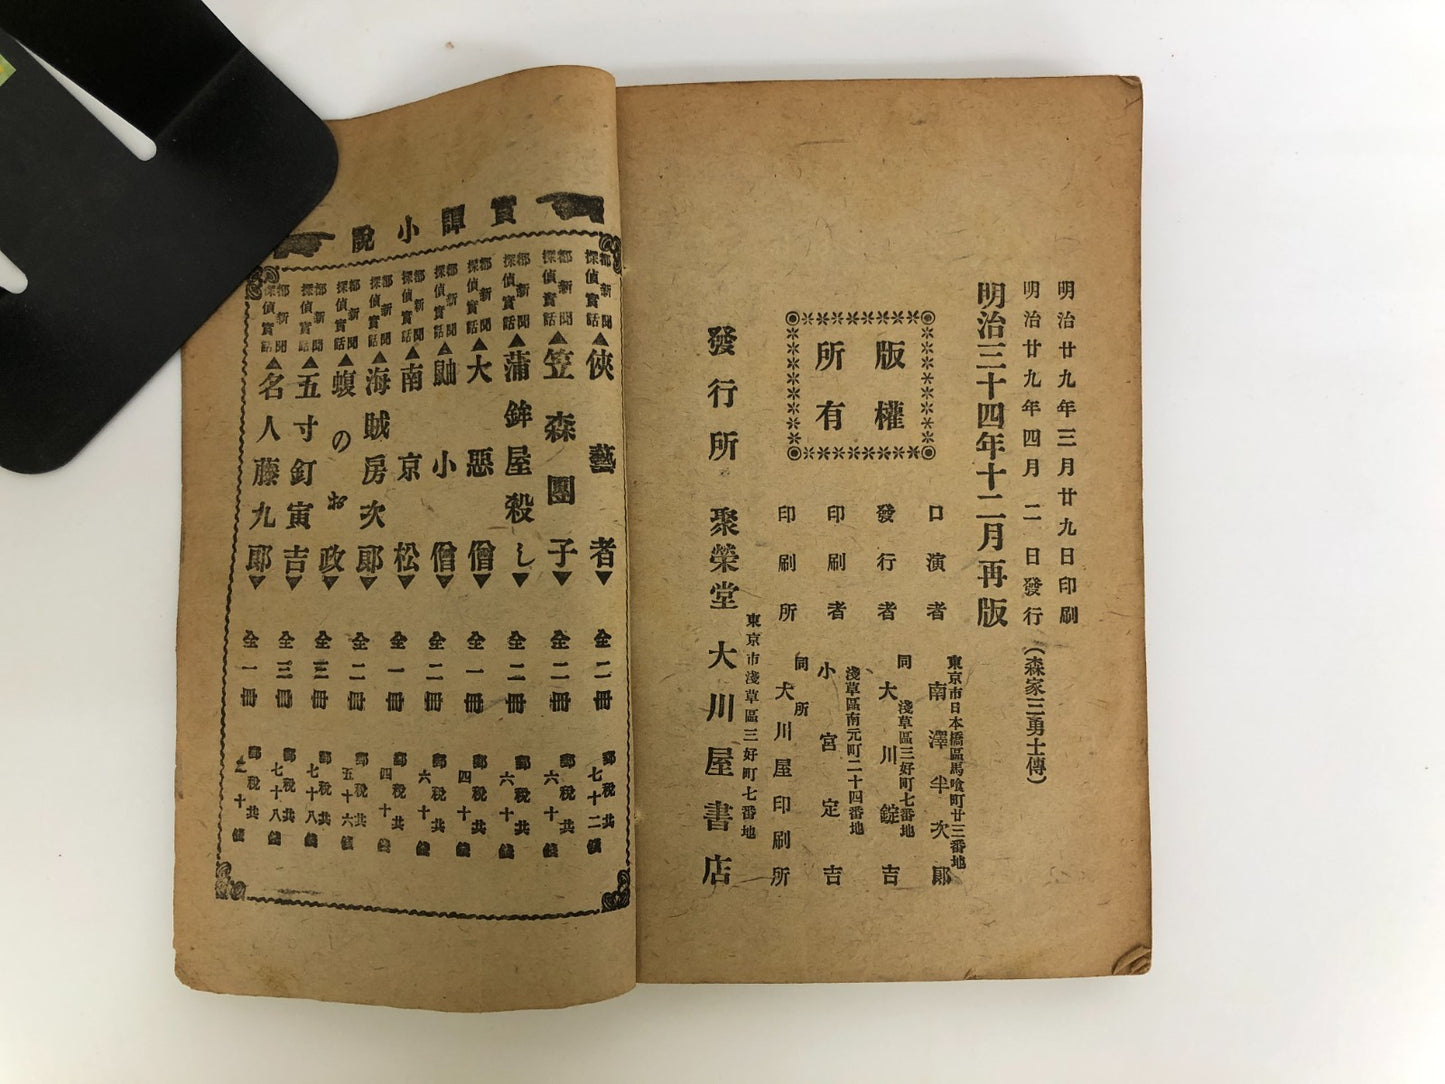 明治廿九年三月廿九日印刷
明治廿九年四月二日發行
(森家三勇士傳)
明治三十四年十二月再版
版權
所有
口演者
東京市日本橋區馬喰町廿三番地
南澤半次郎
發行者
同淺草區三好町七番地
大川錠吉
印刷者
淺草區南元町二十四番地
小宮定吉
印刷所
同所
大川屋印刷所
東京市淺草區三好町七番地
發行所 聚榮堂 大川屋書店
實譚小說
都新聞探偵實話▲俠藝者▼全二冊 郵稅共七十二錢
都新聞探偵實話▲笠森團子▼全二冊 郵稅共六十錢
都新聞探偵實話▲蒲鉾屋殺し▼全二冊 郵稅共六十錢
都新聞探偵實話▲大惡僧▼全一冊 郵稅共四十錢
都新聞探偵實話▲鼬小僧▼全二冊 郵稅共六十錢
都新聞探偵實話▲南京松▼全一冊 郵稅共四十錢
都新聞探偵實話▲海賊房次郎▼全二冊 郵稅共五十六錢
都新聞探偵實話▲蝮のお政▼全三冊 郵稅共七十八錢
都新聞探偵實話▲五寸釘寅吉▼全三冊 郵稅共七十八錢
都新聞探偵實話▲名人藤九郎▼全一冊 郵稅共十錢